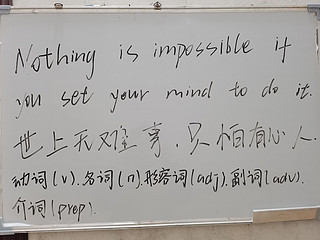 Nothing is impossible if
you set your mind to do it.
世上无难事，只怕有心人.
动词(v). 名词(n). 形容词(adj). 副词(adv).
介词(prep).